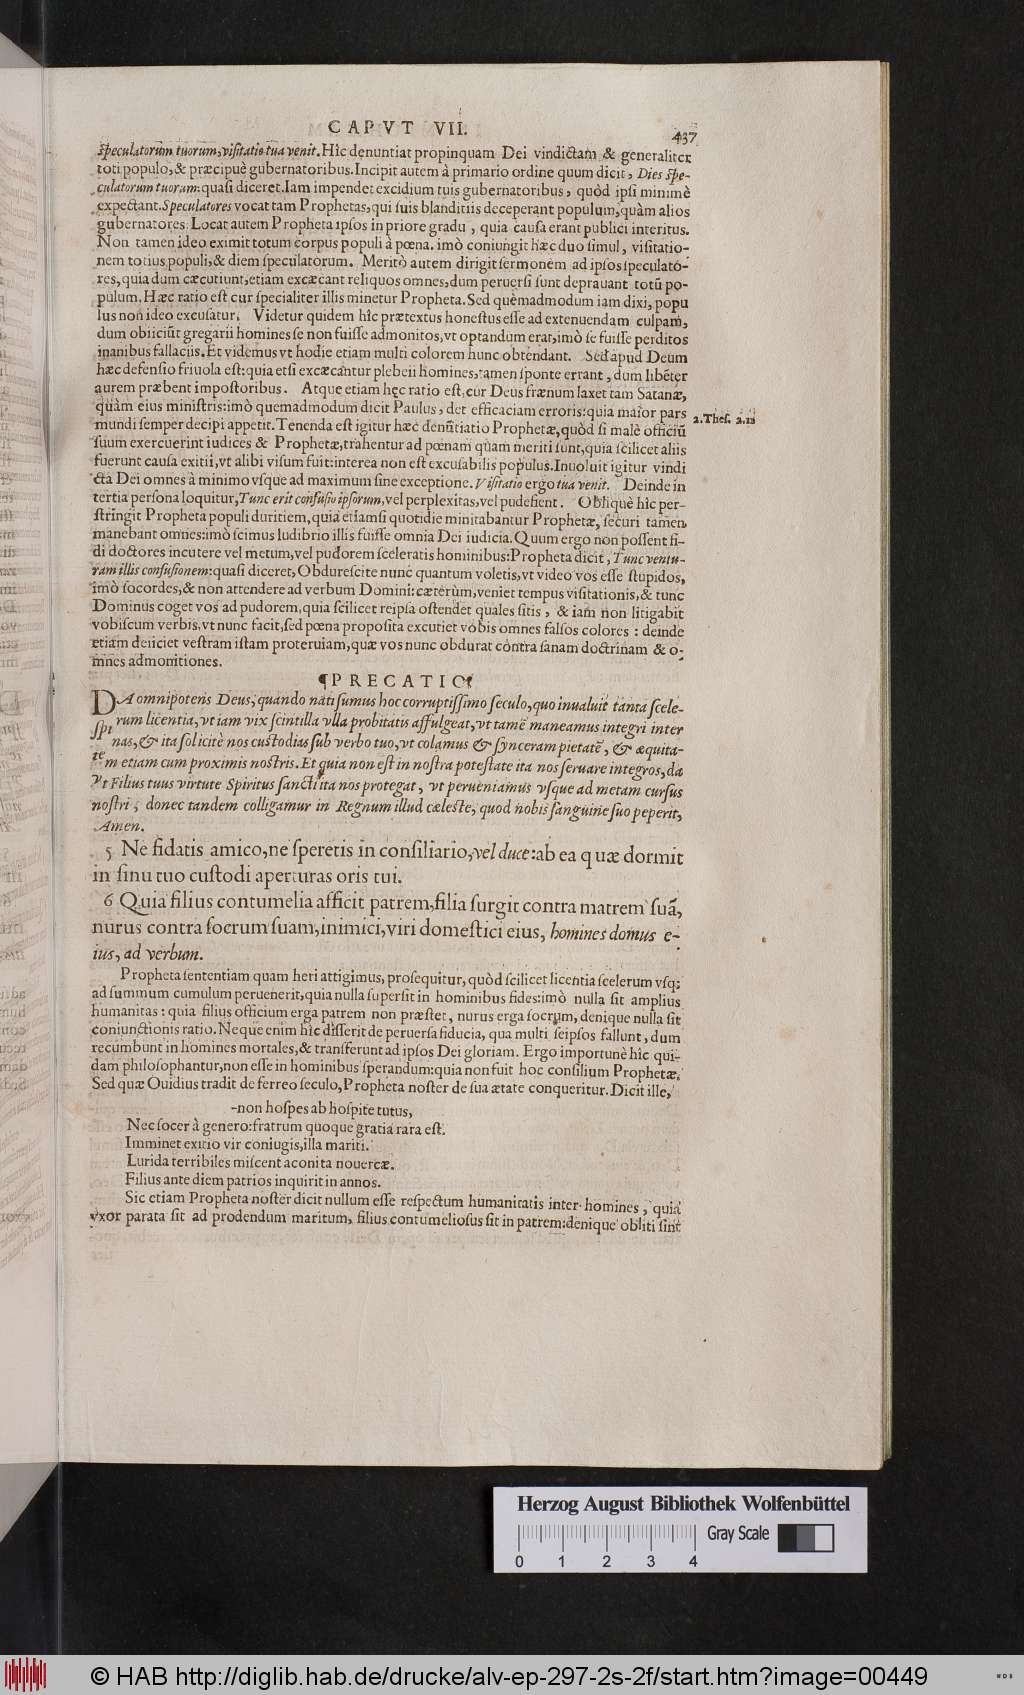 CAPVT VII.
437
speculatorum tuorum, visitatio tua venit. Hîc denuntiat propinquam Dei vindictam & generaliter
toti populo, & præcipuè gubernatoribus. Incipit autem à primario ordine quum dicit, Dies spe-
culatorum tuorum: quasi diceret. Iam impendet excidium tuis gubernatoribus, quòd ipsi minimè
expectant. Speculatores vocat tam Prophetas, qui suis blanditiis deceperant populum, quàm alios
gubernatores. Locat autem Propheta ipsos in priore gradu, quia causa erant publici interitus.
Non tamen ideo eximit totum corpus populi à pœna. imò coniungit hæc duo simul, visitatio-
nem totius populi, & diem speculatorum. Meritò autem dirigit sermonem ad ipsos speculato-
res, quia dum cæcutiunt, etiam excæcant reliquos omnes, dum peruersi sunt deprauant totũ po-
pulum. Hæc ratio est cur specialiter illis minetur Propheta. Sed quemadmodum iam dixi, popu
lus non ideo excusatur. Videtur quidem hîc prætextus honestus esse ad extenuendam culpam,
dum obiiciũt gregarii homines se non fuisse admonitos, vt optandum erat, imò se fuisse perditos
inanibus fallaciis. Et videmus vt hodie etiam multi colorem hunc obtendant. Sed apud Deum
hæc defensio friuola est: quia etsi excæcantur plebeii homines, tamen sponte errant, dum libẽter
aurem præbent impostoribus. Atque etiam hęc ratio est, cur Deus frænum laxet tam Satanæ,
quàm eius ministris: imò quemadmodum dicit Paulus, det efficaciam erroris: quia maior pars
2. Thess. 2. 11
mundi semper decipi appetit. Tenenda est igitur hæc denũtiatio Prophetæ, quòd si malè officiũ
suum exercuerint iudices & Prophetæ, trahentur ad pœnam quam meriti sunt, quia scilicet aliis
fuerunt causa exitii, vt alibi visum fuit: interea non est excusabilis populus. Inuoluit igitur vindi
cta Dei omnes à minimo vsque ad maximum sine exceptione. Visitatio ergo tua venit. Deinde in
tertia persona loquitur, Tunc erit confusio ipsorum, vel perplexitas, vel pudefient. Obliquè hîc per-
stringit Propheta populi duritiem, quia etiamsi quotidie minitabantur Prophetæ, securi tamen
manebant omnes: imò scimus ludibrio illis fuisse omnia Dei iudicia. Quum ergo non possent fi-
di doctores incutere vel metum, vel pudorem sceleratis hominibus: Propheta dicit, Tunc ventu-
ram illis confusionem: quasi diceret, Obdurescite nunc quantum voletis, vt video vos esse stupidos,
imò socordes, & non attendere ad verbum Domini: cæterùm, veniet tempus visitationis, & tunc
Dominus coget vos ad pudorem, quia scilicet reipsa ostendet quales sitis, & iam non litigabit
vobiscum verbis, vt nunc facit, sed pœna proposita excutiet vobis omnes falsos colores: deinde
etiam deiiciet vestram istam proteruiam, quæ vos nunc obdurat contra sanam doctrinam & o-
mnes admonitiones.
¶PRECATIO¶
DA omnipotens Deus, quando nati sumus hoc corruptissimo seculo, quo inualuit tanta scele-
rum licentia, vt iam vix scintilla vlla probitatis affulgeat, vt tamẽ maneamus integri inter
spinas, & ita solicitè nos custodias sub verbo tuo, vt colamus & synceram pietatẽ, & æquita-
tem etiam cum proximis nostris. Et quia non est in nostra potestate ita nos seruare integros, da
vt Filius tuus virtute Spiritus sancti ita nos protegat, vt perueniamus vsque ad metam cursus
nostri, donec tandem colligamur in Regnum illud cæleste, quod nobis sanguine suo peperit,
Amen.
5 Ne fidatis amico, ne speretis in consiliario, vel duce: ab ea quæ dormit
in sinu tuo custodi aperturas oris tui.
6 Quia filius contumelia afficit patrem, filia surgit contra matrem suã,
nurus contra socrum suam, inimici, viri domestici eius, homines domus e-
ius, ad verbum.
Propheta sententiam quam heri attigimus, prosequitur, quòd scilicet licentia scelerum vsq;
ad summum cumulum peruenerit, quia nulla supersit in hominibus fides: imò nulla sit amplius
humanitas: quia filius officium erga patrem non præstet, nurus erga socrum, denique nulla sit
coniunctionis ratio. Neque enim hîc disserit de peruersa fiducia, qua multi seipsos fallunt, dum
recumbunt in homines mortales, & transferunt ad ipsos Dei gloriam. Ergo importunè hîc qui-
dam philosophantur, non esse in hominibus sperandum: quia non fuit hoc consilium Prophetæ.
Sed quæ Ouidius tradit de ferreo seculo, Propheta noster de sua ætate conqueritur. Dicit ille,
-non hospes ab hospite tutus,
Nec socer à genero: fratrum quoque gratia rara est.
Imminet exitio vir coniugis, illa mariti.
Lurida terribiles miscent aconita nouercæ.
Filius ante diem patrios inquirit in annos.
Sic etiam Propheta noster dicit nullum esse respectum humanitatis inter homines, quia
vxor parata sit ad prodendum maritum, filius contumeliosus sit in patrem: denique obliti sint
Herzog August Bibliothek Wolfenbüttel
Gray Scale
0 1 2 3 4
© HAB http://diglib.hab.de/drucke/alv-ep-297-2s-2f/start.htm?image=00449